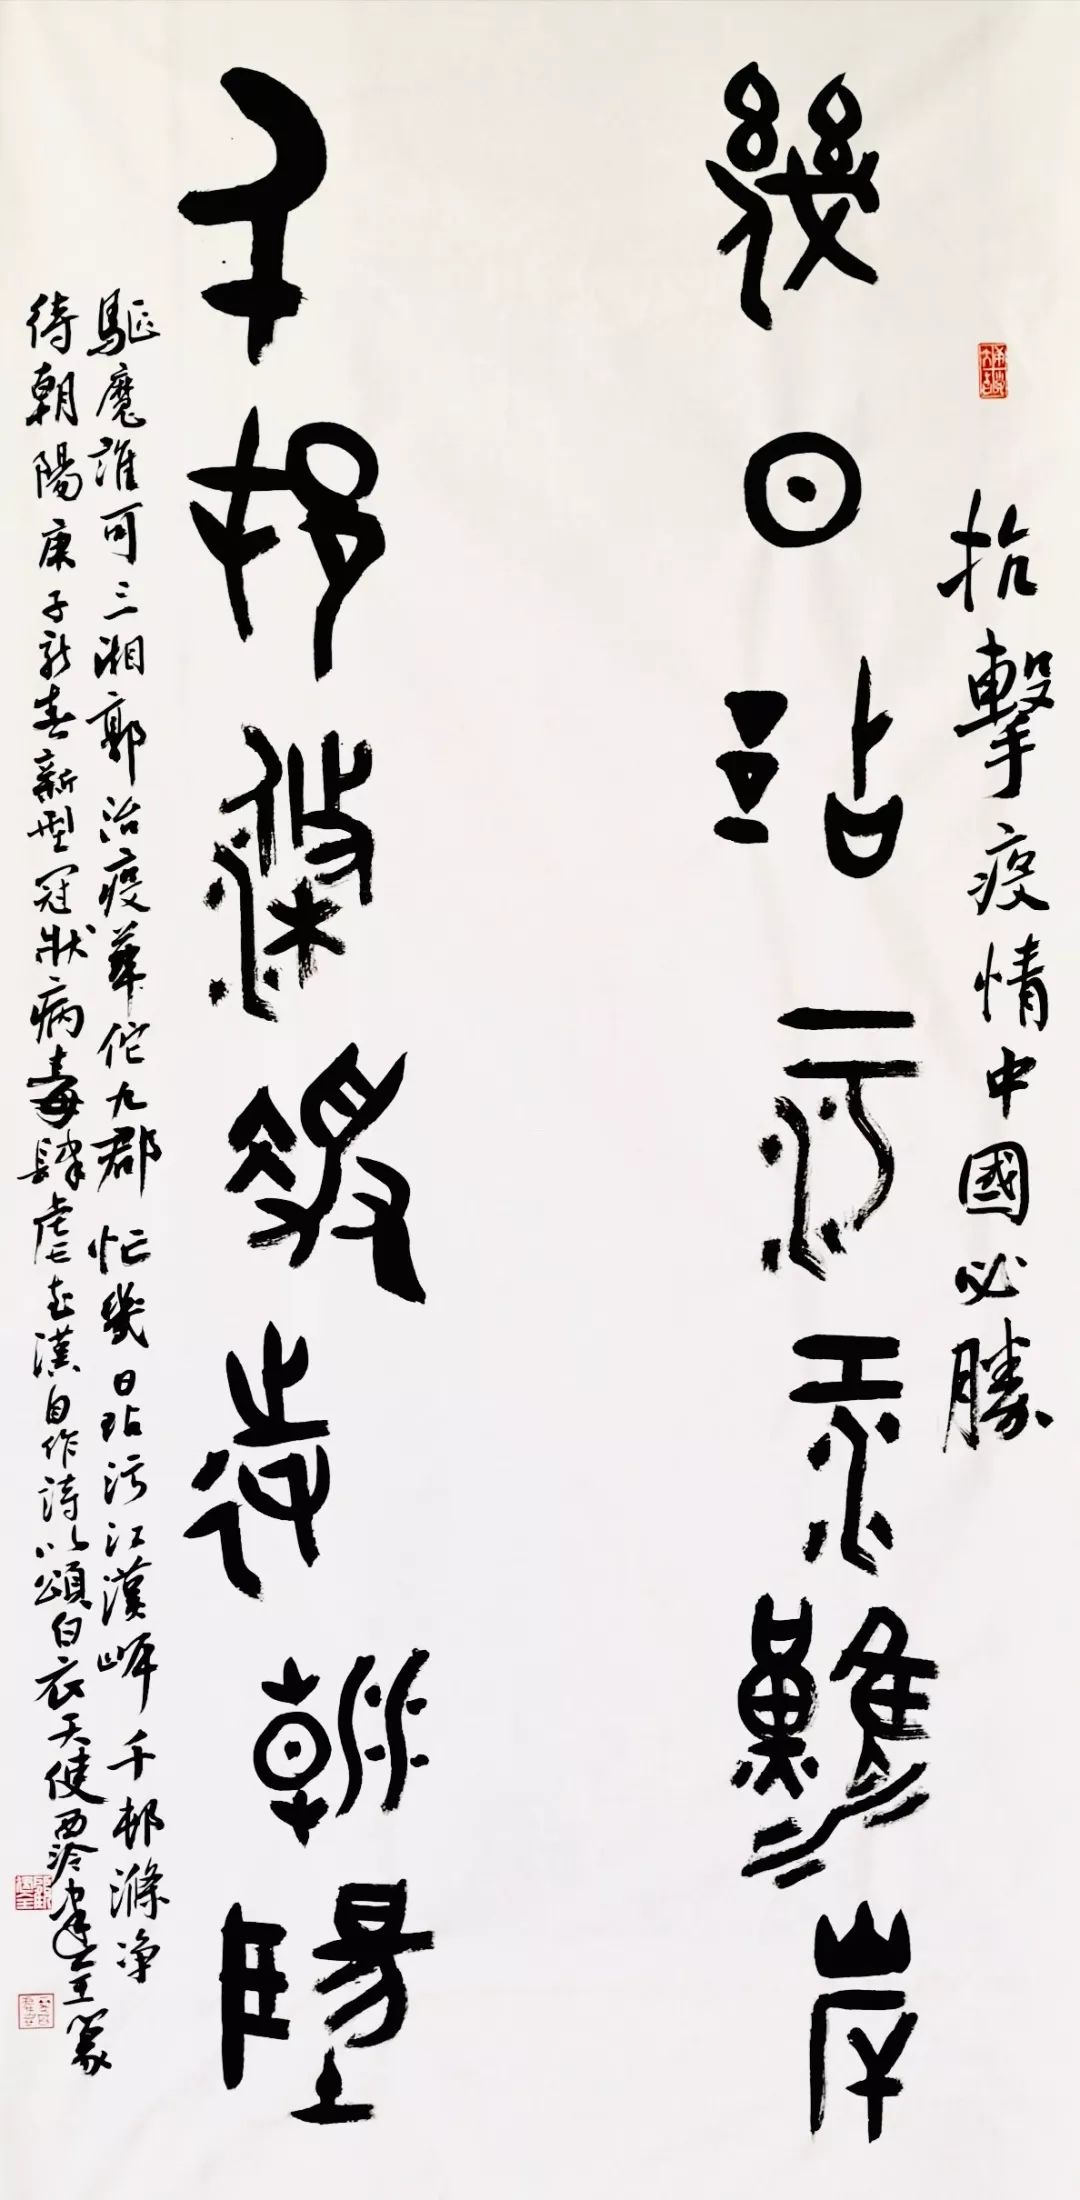 抗擊疫情中國必勝
幾日玷污江漢岸
千邨滌净待朝陽
驅魔誰可三湘郭治疫華佗九郡忙幾日玷污江漢岸千邨滌净
待朝陽庚子新春新型冠狀病毒肆虐武漢自作詩以頌白衣天使西泠建全篆